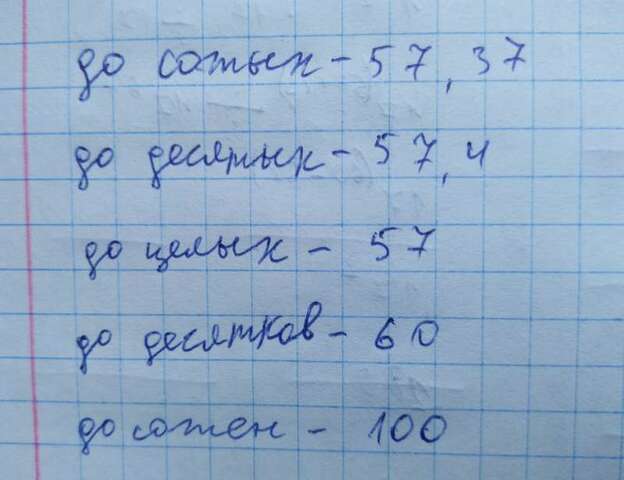 до сотых - 57,37
до десятых - 57,4
до целых - 57
до десятков - 60
до сотен - 100